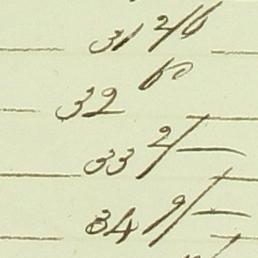 31 2/6
32 60
33 2/-
34 9/-